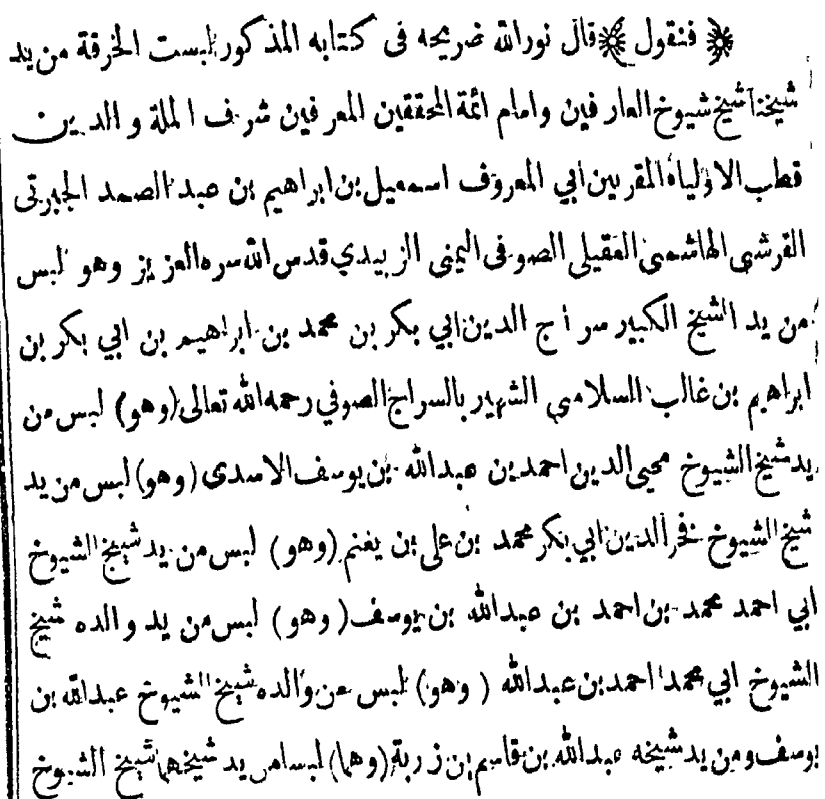 ﴿ فنقول ﴾ قال نورالله ضريحه فى كتابه المذكور لبست الخرقة من يد
شيخنا شيخ شيوخ العارفين وامام ائمة المحققين المعرفين شرف الملة والدين
قطب الاولياء المقربين ابي المعروف اسمعيل بن ابراهيم بن عبد الصمد الجبرتى
القرشى الهاشمى العقيلى الصوفى اليمنى الزبيدي قدس الله سره العزيز وهو لبس
من يد الشيخ الكبير سراج الدين ابي بكر بن محمد بن ابراهيم بن ابي بكر بن
ابراهيم بن غالب السلامى الشهير بالسراج الصوفي رحمه الله تعالى (وهو) لبس من
يد شيخ الشيوخ محيى الدين احمد بن عبدالله بن يوسف الاسدى (وهو) لبس من يد
شيخ الشيوخ فخر الدين ابي بكر محمد بن على بن يغنم (وهو) لبس من يد شيخ الشيوخ
ابي احمد محمد بن احمد بن عبدالله بن يوسف (وهو) لبس من يد والده شيخ
الشيوخ ابي محمد احمد بن عبدالله (وهو) لبس عن والده شيخ الشيوخ عبدالله بن
يوسف ومن يد شيخه عبدالله بن قاسم بن زربة (وهما) لبسا من يد شيخهما شيخ الشيوخ